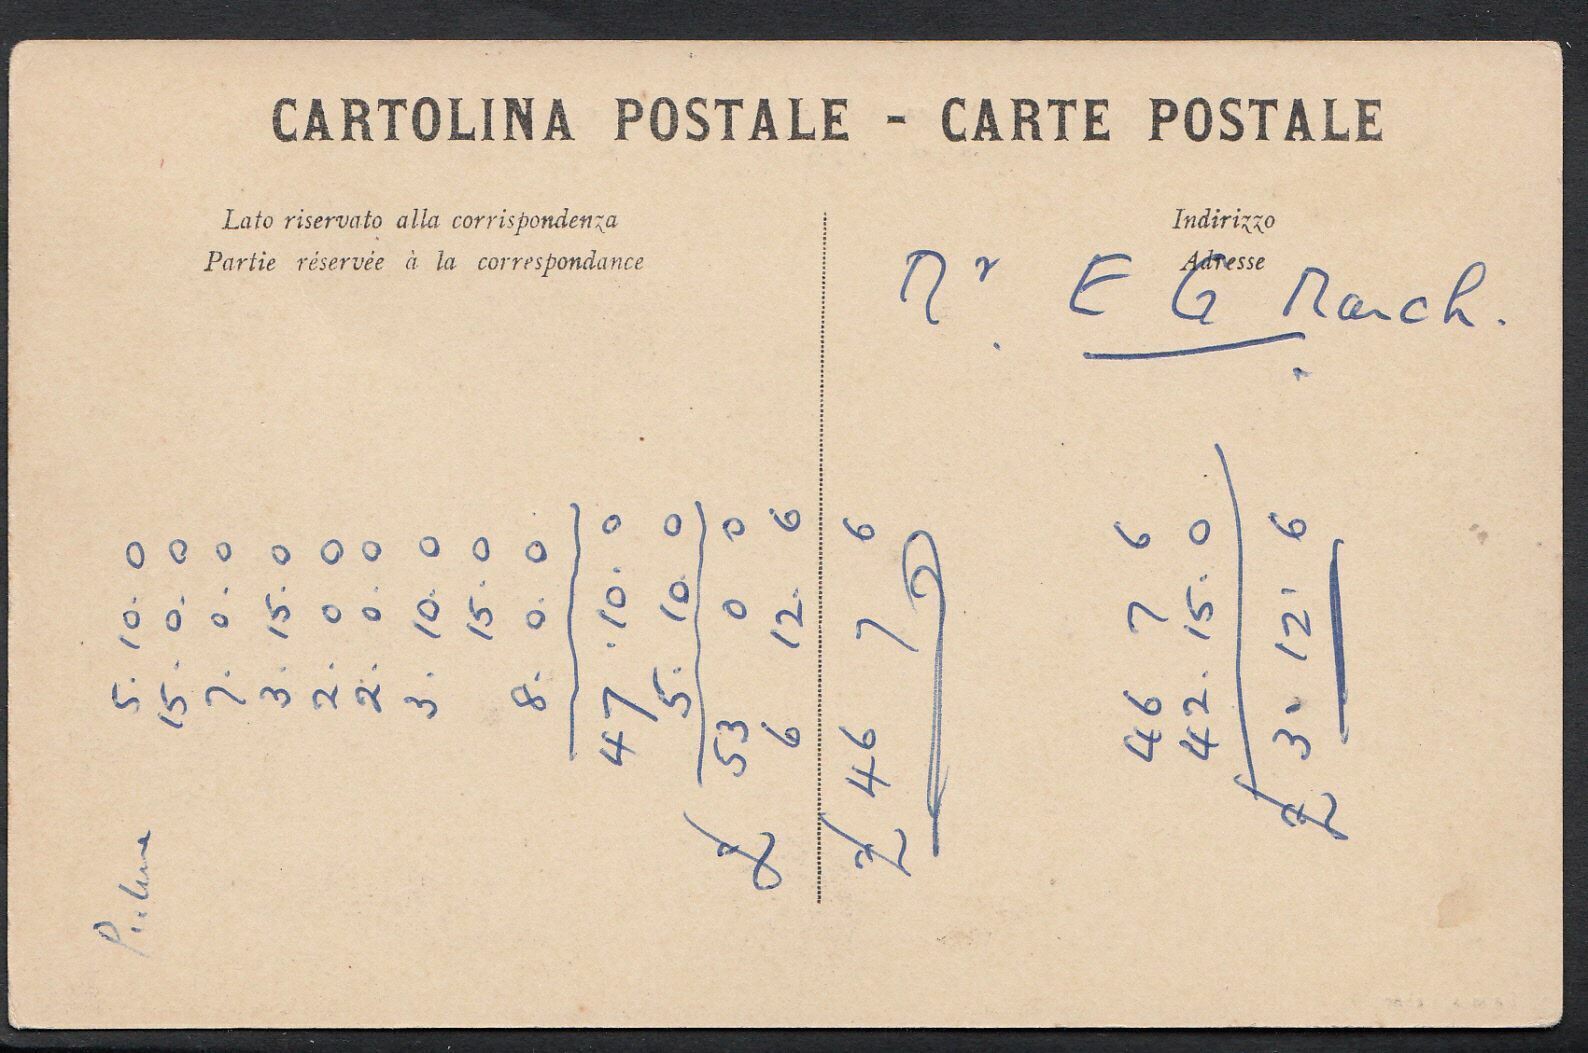 CARTOLINA POSTALE - CARTE POSTALE
Lato riservato alla corrispondenza
Partie réservée à la correspondance
Indirizzo
Adresse
Mr E G March.
5. 10. 0
15. 0. 0
7. 0. 0
3. 15. 0
2. 0 0
2. 0. 0
3. 10. 0
15. 0
8. 0. 0
47. 10. 0
5. 10. 0
£ 53 0 0
6 12. 6
£ 46 7 6
46 7 6
42. 15. 0
£ 3. 12. 6